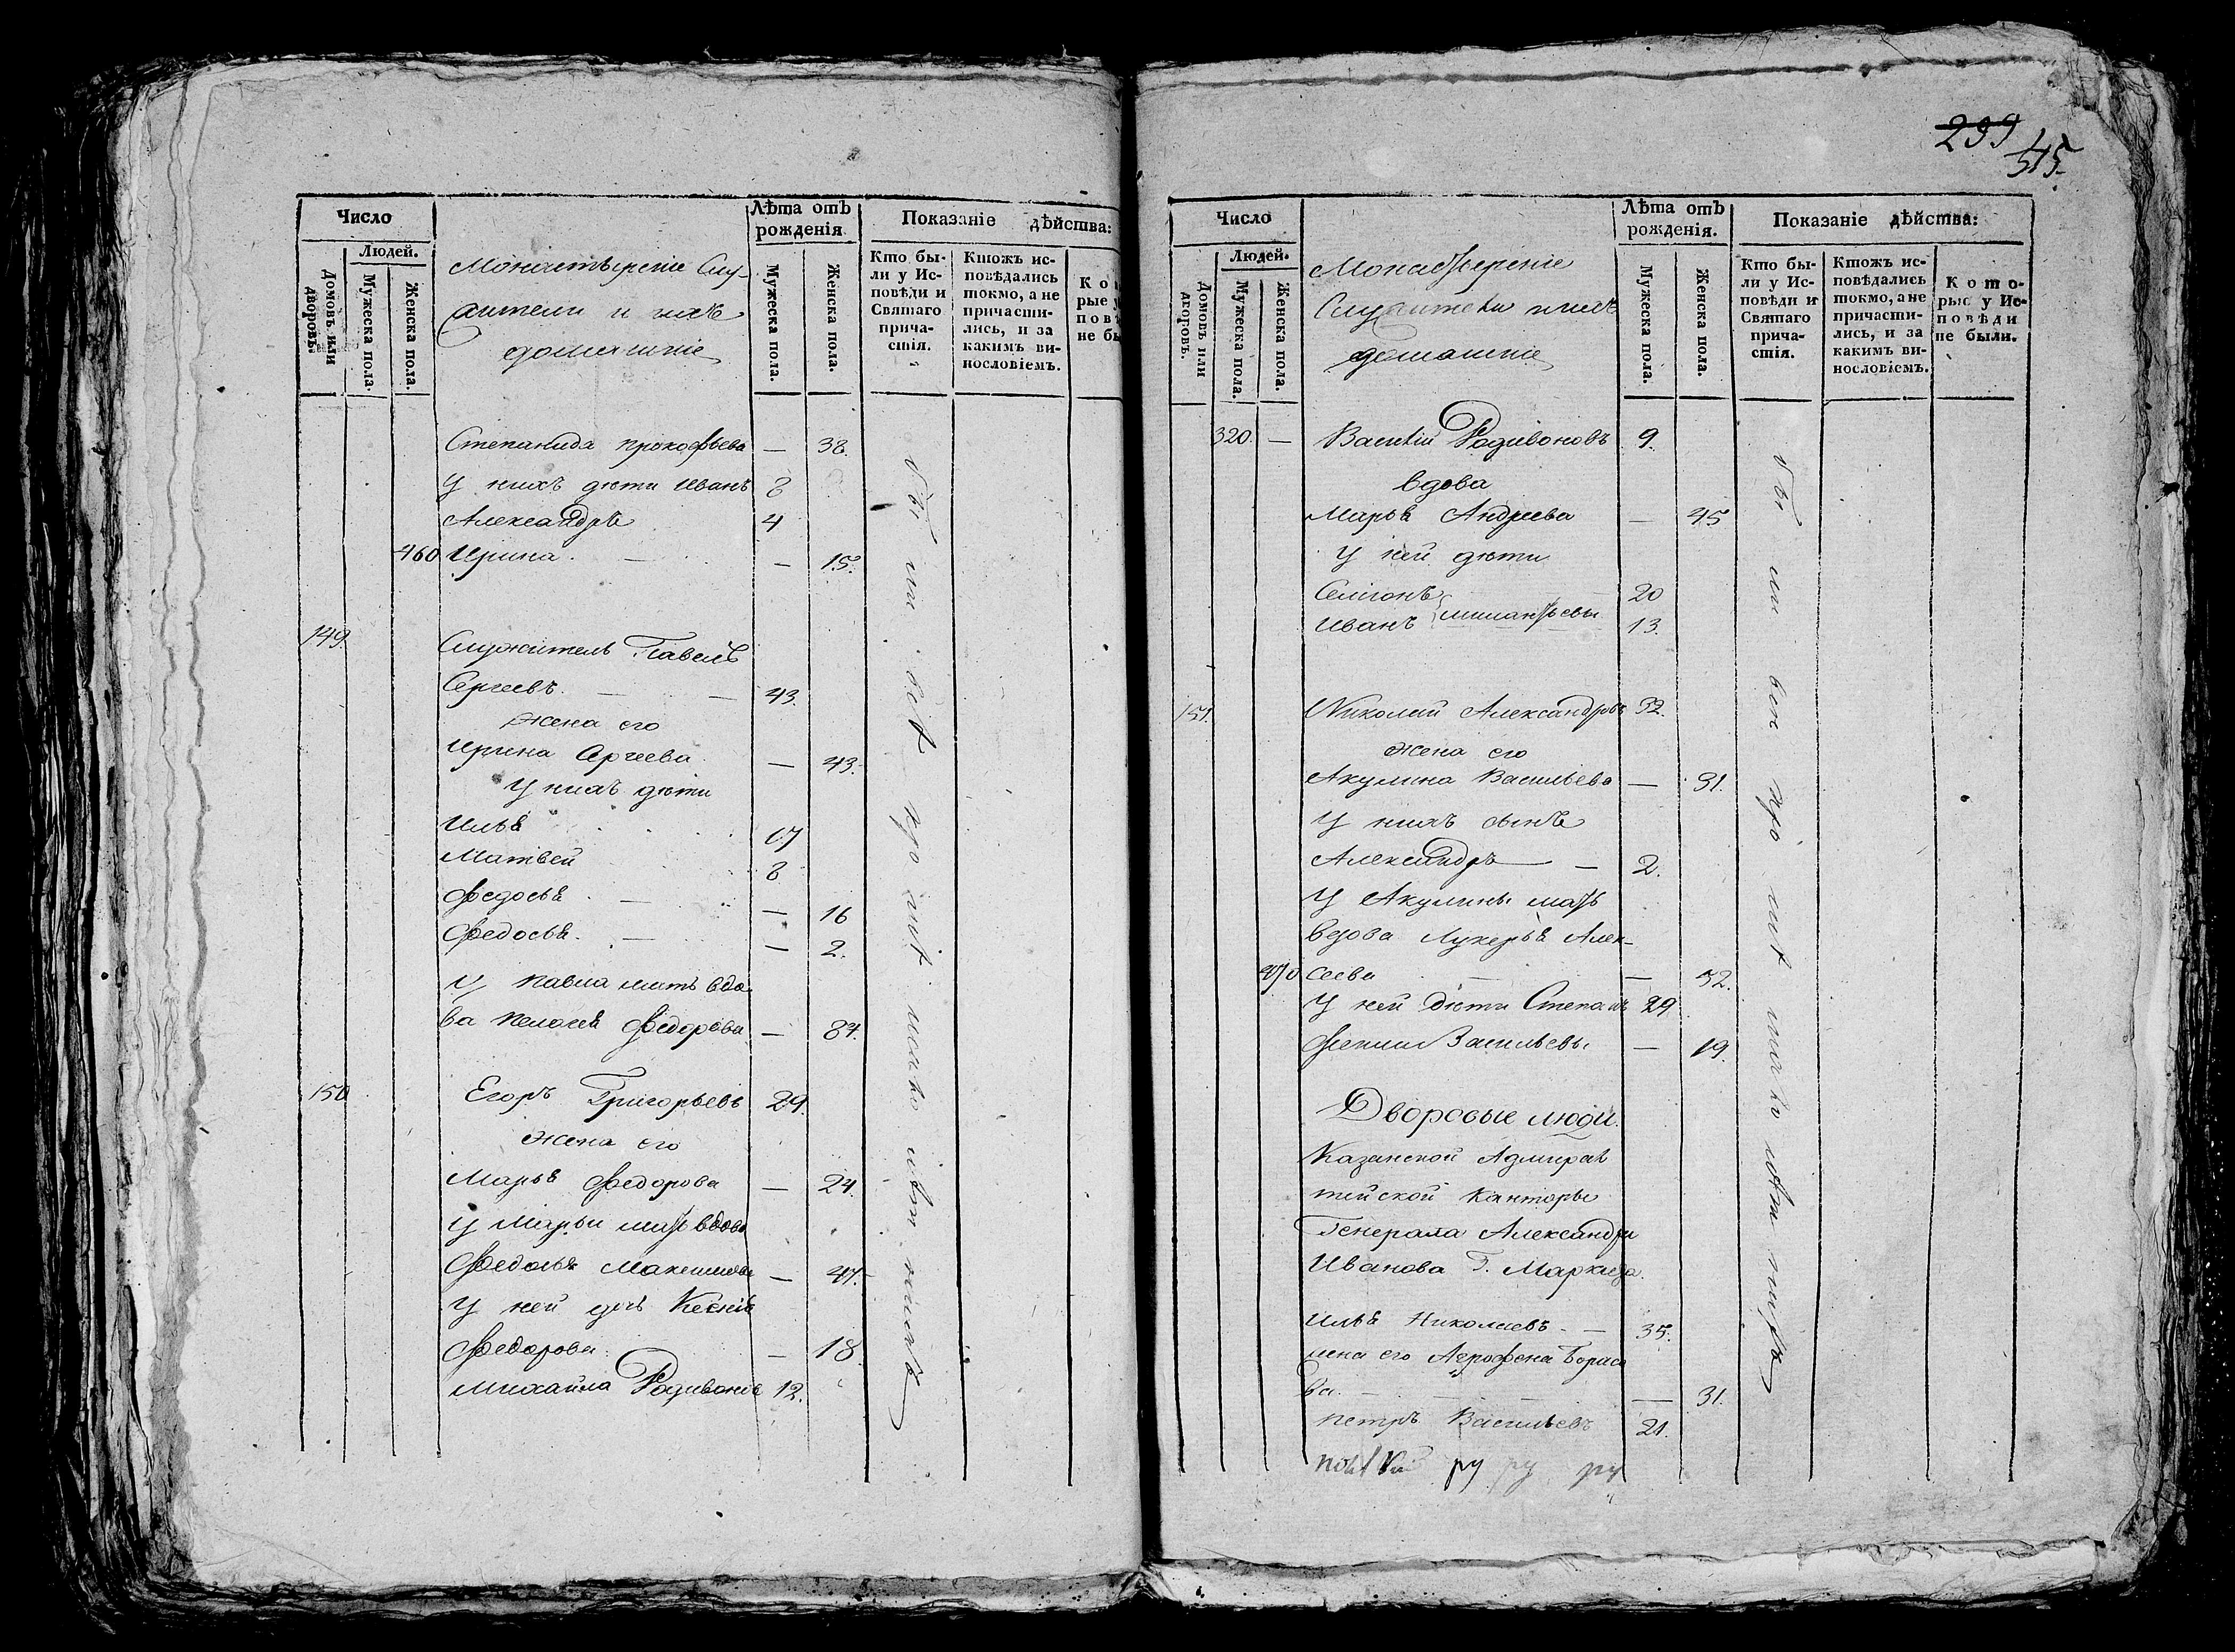 Число
Людей.
Домовъ или дворовъ.
Мужеска пола.
Женска пола.
Монастырскіе Слу-
жители и ихъ
домашніе
Лѣта отъ рожденія
Мужеска пола.
Женска пола.
Показаніе дѣйства:
Кто бы-
ли у Ис-
повѣди и
Святаго
прича-
стія.
Ктожъ ис-
повѣдались
токмо, а не
причасти-
лись, и за
какимъ ви-
нословіемъ.
Ко
рые у
пов
не бы
Степанида Прокофьева — 38.
У нихъ дѣти Иванъ 8
Александръ 4
460 Ирина — — 15.
149. Служитель Павелъ
Сергеевъ — — 43.
жена его
Ирина Сергеева — 43.
У нихъ дѣти
Илья 17
Матвей 8
Федосья — — 16
Федосья — — 2.
У Павла мать вдо-
ва Пелагея Федорова — 87.
150 Егоръ Григорьевъ 29.
жена его
Марья Федорова — 24.
У Марьи мать вдова
Федосья — 47.
У ней дочь Ксенія
Федорова — 18.
Михайла Радивоновъ 12.
299
545.
Число
Людей.
Домовъ или дворовъ.
Мужеска пола.
Женска пола.
Монастырскіе
Служители и ихъ
домашніе
Лѣта отъ рожденія.
Мужеска пола.
Женска пола.
Показаніе дѣйства:
Кто бы-
ли у Ис-
повѣди и
Святаго
прича-
стія.
Ктожъ ис-
повѣдались
токмо, а не
причасти-
лись, и за
какимъ ви-
нословіемъ.
Кото-
рые у Ис-
повѣди
не были.
320. — Василій Радивоновъ 9.
вдова
Марья Андреева — 45
У ней дѣти
20
Иванъ 13.
151. Николай Александровъ 32.
жена его
Акулина Васильева — 31.
У нихъ сынъ
Александръ — — 2.
У Акулины мать
вдова Лукерья Алек-
470 сеева — — 52.
У ней дѣти Степанъ 29
Васильевы — 19.
Дворовые люди.
Казанской Адмирал
тейской Канторы
Генерала Александра
Иванова
Илья Николаевъ — — 35.
жена его Агрофена Борисо
ва — — 31.
Петръ Васильевъ 21.
ру ру ру